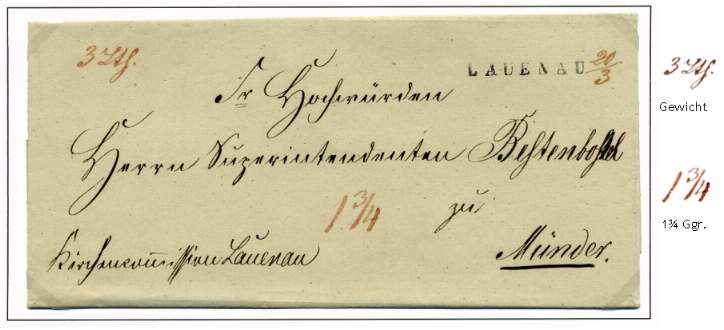 3 Lth.
LAUENAU 20/3
Sr Hochwürden
Herrn Superintendenten Bestenbostel
1 3/4 zu
Kirchencom̄ission Lauenau
Münder.
3 Lth.
Gewicht
1 3/4
1¾ Ggr.